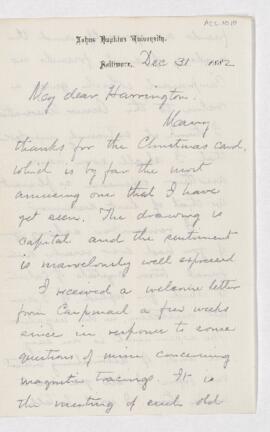 Johns Hopkins University.
Baltimore, Dec 31 1882
My dear Harrington.
Many
thanks for the Christmas card,
which is by far the most
amusing one that I have
yet seen. The drawing is
capital and the sentiment
is marvelously well expressed
I received a welcome letter
from Carpmael a few weeks
since in response to some
questions of mine concerning
magnetic tracings. It is
the meeting of such old